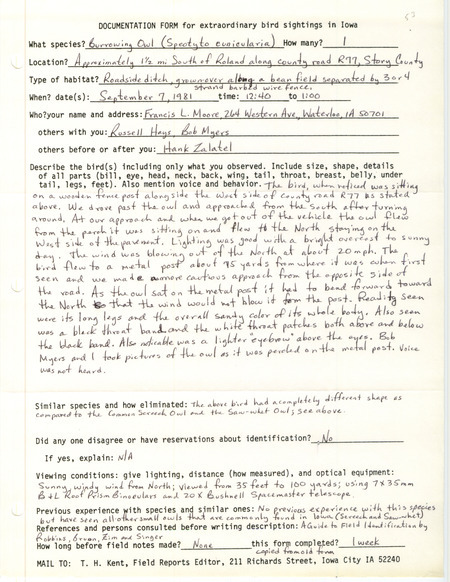 DOCUMENTATION FORM for extraordinary bird sightings in Iowa
What species? Burrowing Owl (Speotyto cunicularia) How many? 1
Location? Approximately 1½ mi South of Roland along county road R77, Story County
Type of habitat? Roadside ditch, grown over along a bean field separated by 3 or 4
strand barbed wire fence.
When? date(s): September 7, 1981 time: 12:40 to 1:00
Who? your name and address: Francis L. Moore, 264 Western Ave, Waterloo, IA 50701
others with you: Russell Hays, Bob Myers
others before or after you: Hank Zaletel
Describe the bird(s) including only what you observed. Include size, shape, details
of all parts (bill, eye, head, neck, back, wing, tail, throat, breast, belly, under
tail, legs, feet). Also mention voice and behavior. The bird, when noticed was sitting
on a wooden fence post alongside the West side of county road R77 as stated
above. We drove past the owl and approached from the South after turning
around. At our approach and when we got out of the vehicle the owl flew
from the perch it was sitting on and flew to the North staying on the
West side of the pavement. Lighting was good with a bright overcast to sunny
day. The wind was blowing out of the North at about 20 mph. The
bird flew to a metal post about 75 yards from where it was when first
seen and we made a more cautious approach from the opposite side of
the road. As the owl sat on the metal post it had to bend forward toward
the North so that the wind would not blow it from the post. Readily seen
were its long legs and the overall sandy color of its whole body. Also seen
was a black throat band and the white throat patches both above and below
the black band. Also noticable was a lighter "eyebrow" above the eyes. Bob
Myers and I took pictures of the owl as it was perched on the metal post. Voice
was not heard.
Similar species and how eliminated: The above bird had a completely different shape as
compared to the Common Screech Owl and the Saw-whet Owl; see above.
Did any one disagree or have reservations about identification? No
If yes, explain: N/A
Viewing conditions: give lighting, distance (how measured), and optical equipment:
Sunny, windy wind from North; viewed from 35 feet to 100 yards; using 7x35mm
B+L Roof Prism Binoculars and 20X Bushnell Spacemaster telescope.
Previous experience with this species and similar ones: No previous experience with this species
but have seen all other small owls that are commonly found in Iowa (Screech and Saw-whet)
References and persons consulted before writing description: A Guide to Field Identification by
Robbins, Bruun, Zim and Singer
How long before field notes made? None this form completed? 1 week
copied from old form
MAIL TO: T. H. Kent, Field Reports Editor, 211 Richards Street, Iowa City IA 52240